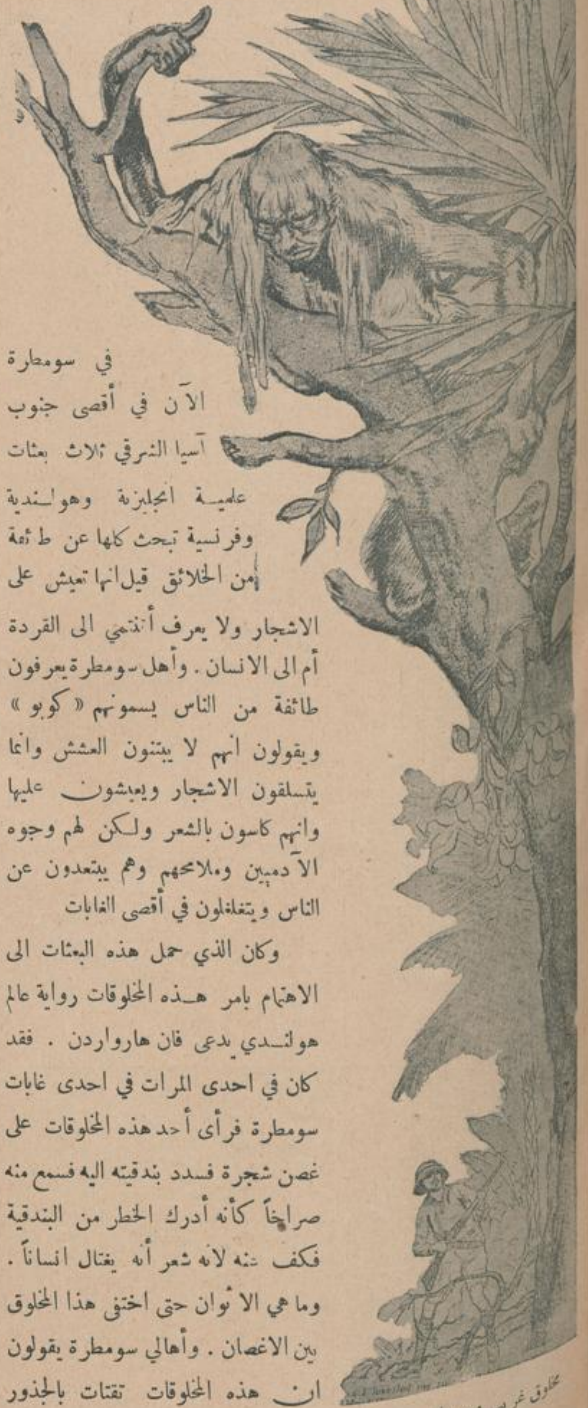 في سومطرة
الآن في أقصى جنوب
آسيا الشرقي ثلاث بعثات
علمية انجليزية وهولندية
وفرنسية تبحث كلها عن طائفة
من الخلائق قيل انها تعيش على
الاشجار ولا يعرف أتنتمي الى القردة
أم الى الانسان . وأهل سومطرة يعرفون
طائفة من الناس يسمونهم « كوبو »
ويقولون انهم لا يبتنون العشش وانما
يتسلقون الاشجار ويعيشون عليها
وانهم كاسون بالشعر ولكن لهم وجوه
الآدميين وملامحهم وهم يبتعدون عن
الناس ويتغلغلون في أقصى الغابات
وكان الذي حمل هذه البعثات الى
الاهتمام بامر هذه المخلوقات رواية عالم
هولندي يدعى فان هارواردن . فقد
كان في احدى المرات في احدى غابات
سومطرة فرأى أحد هذه المخلوقات على
غصن شجرة فسدد بندقيته اليه فسمع منه
صراخاً كأنه أدرك الخطر من البندقية
فكف عنه لانه شعر أنه يغتال انساناً .
وما هي الا ثوان حتى اختفى هذا المخلوق
بين الاغصان . وأهالي سومطرة يقولون
ان هذه المخلوقات تقتات بالجذور
مخلوق